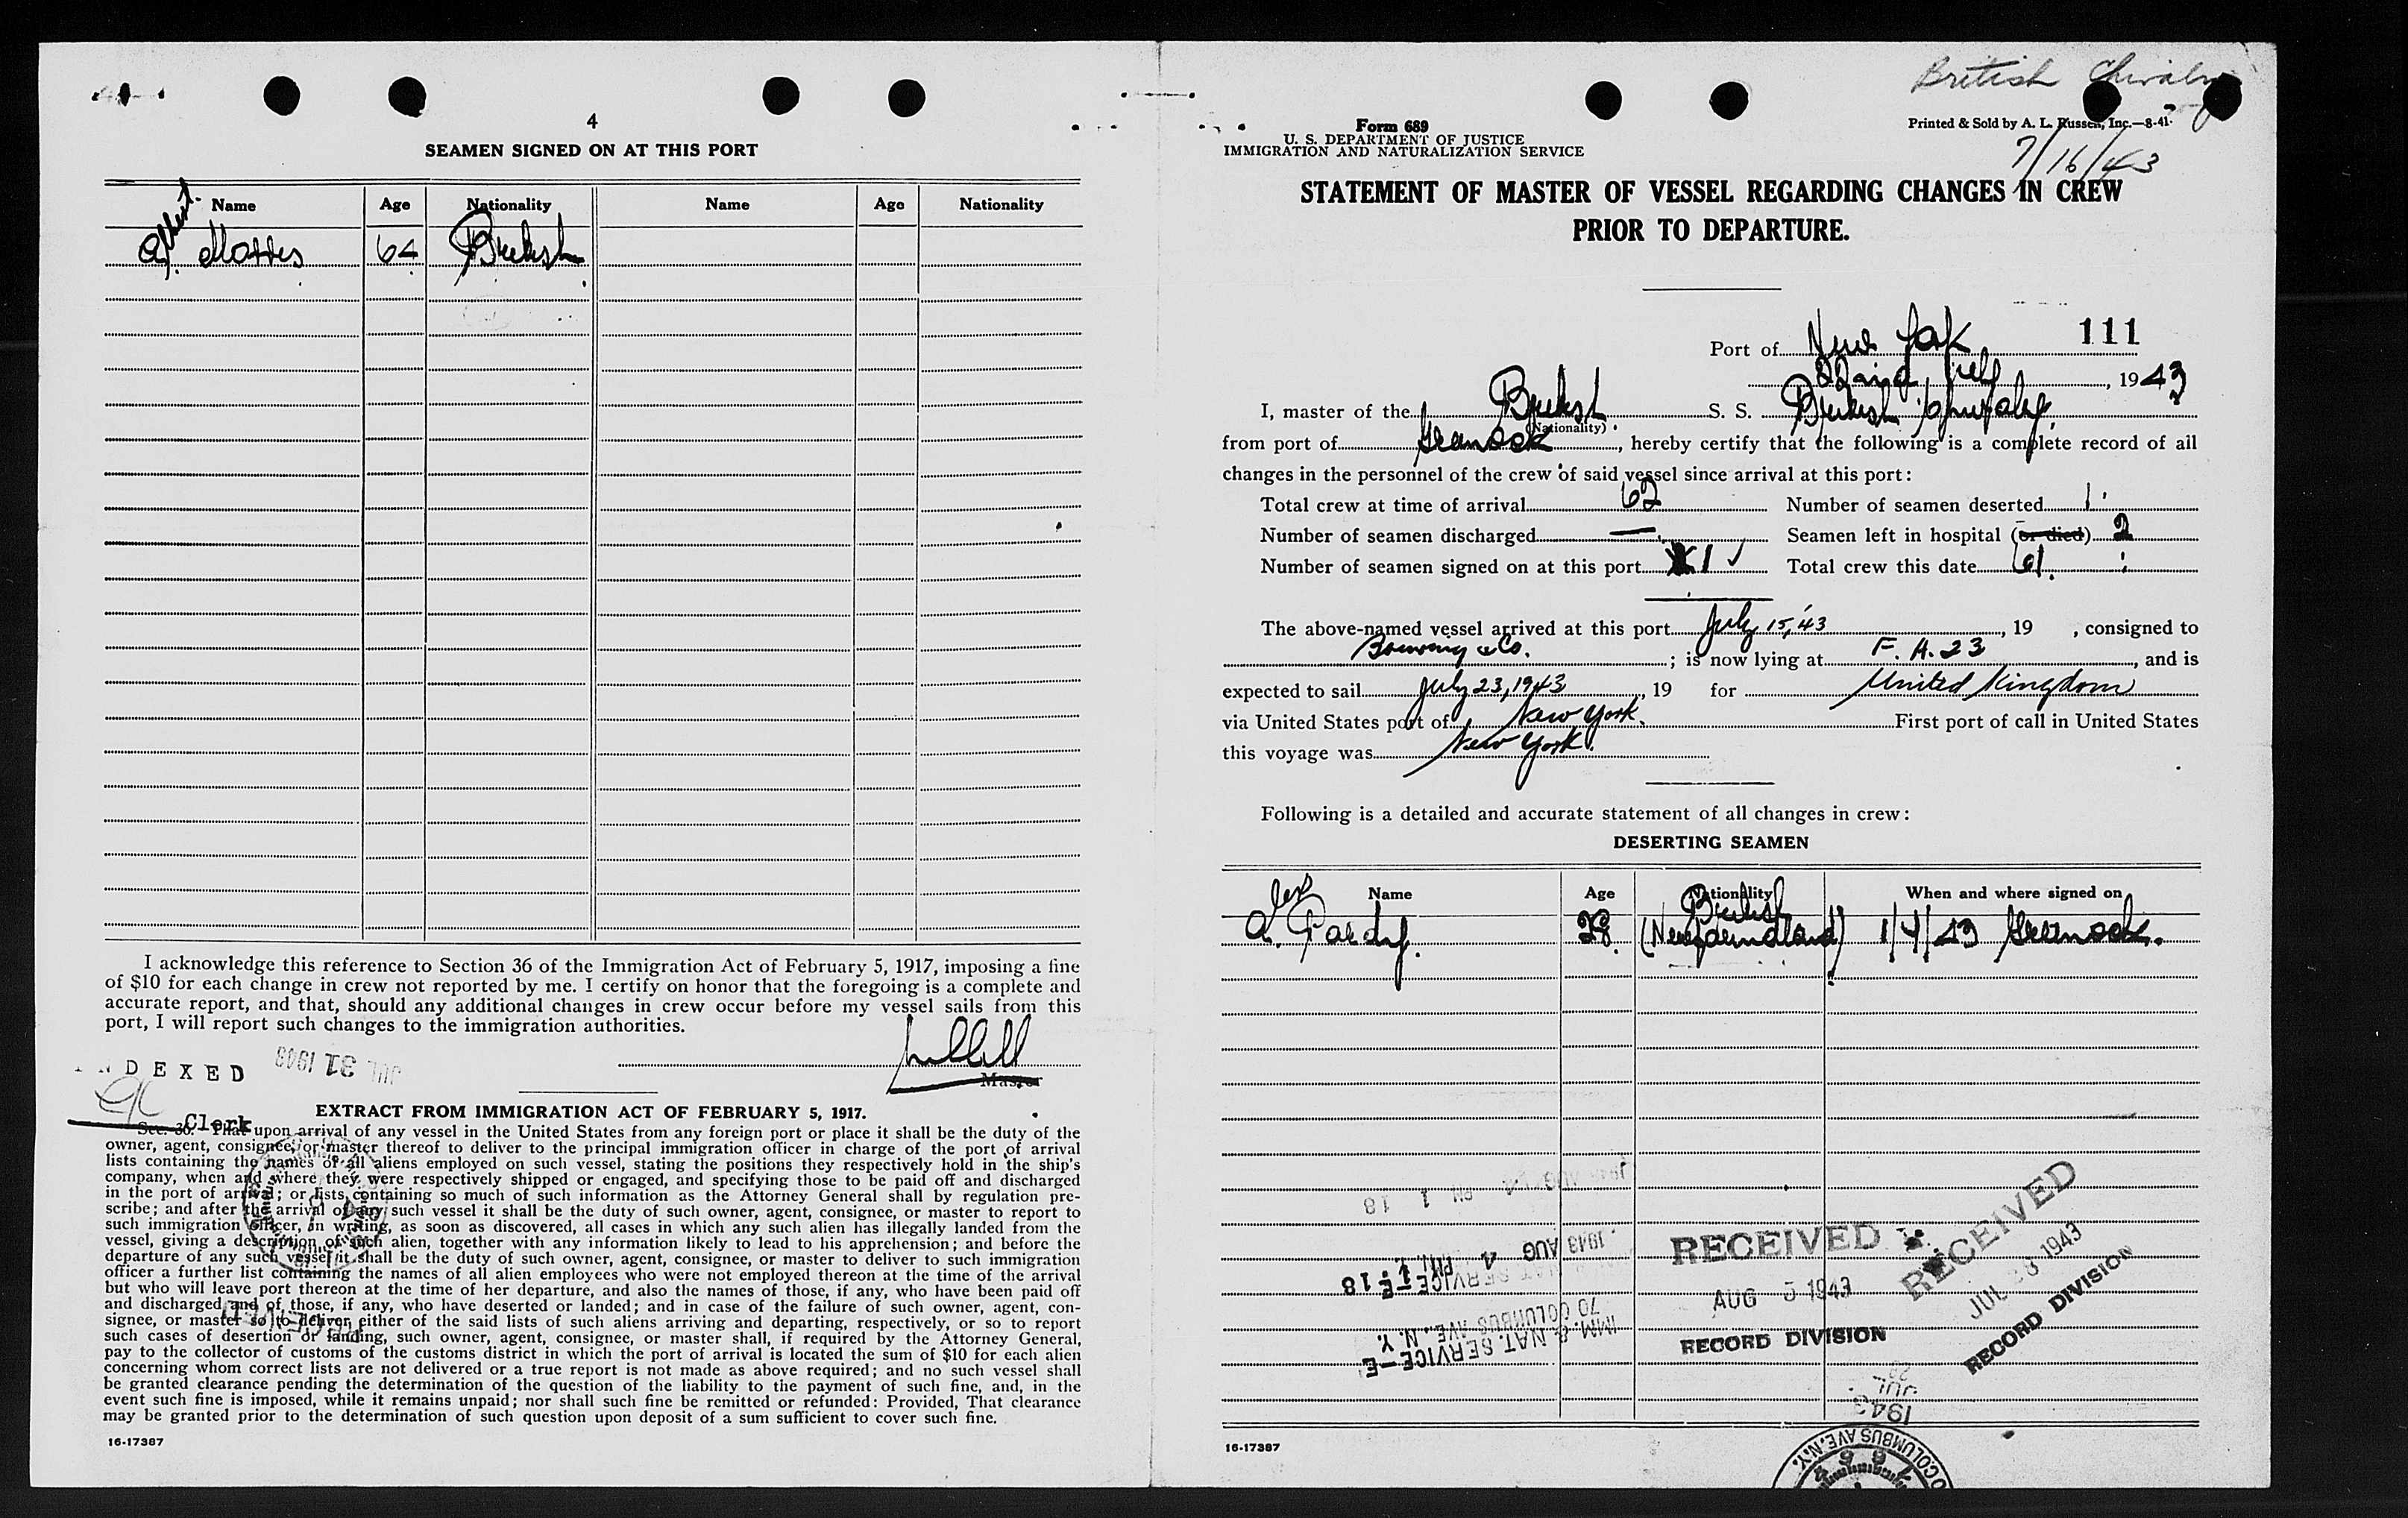 4
SEAMEN SIGNED ON AT THIS PORT
Name Age Nationality Name Age Nationality
Albert
64 British
I acknowledge this reference to Section 36 of the Immigration Act of February 5, 1917, imposing a fine
of $10 for each change in crew not reported by me. I certify on honor that the foregoing is a complete and
accurate report, and that, should any additional changes in crew occur before my vessel sails from this
port, I will report such changes to the immigration authorities.
Master
NDEXED JUL 31 1943
Clerk
EXTRACT FROM IMMIGRATION ACT OF FEBRUARY 5, 1917.
Sec. 36. That upon arrival of any vessel in the United States from any foreign port or place it shall be the duty of the
owner, agent, consignee, or master thereof to deliver to the principal immigration officer in charge of the port of arrival
lists containing the names of all aliens employed on such vessel, stating the positions they respectively hold in the ship's
company, when and where they were respectively shipped or engaged, and specifying those to be paid off and discharged
in the port of arrival; or lists containing so much of such information as the Attorney General shall by regulation pre-
scribe; and after the arrival of any such vessel it shall be the duty of such owner, agent, consignee, or master to report to
such immigration officer, in writing, as soon as discovered, all cases in which any such alien has illegally landed from the
vessel, giving a description of such alien, together with any information likely to lead to his apprehension; and before the
departure of any such vessel it shall be the duty of such owner, agent, consignee, or master to deliver to such immigration
officer a further list containing the names of all alien employees who were not employed thereon at the time of the arrival
but who will leave port thereon at the time of her departure, and also the names of those, if any, who have been paid off
and discharged, and of those, if any, who have deserted or landed; and in case of the failure of such owner, agent, con-
signee, or master so to deliver either of the said lists of such aliens arriving and departing, respectively, or so to report
such cases of desertion or landing, such owner, agent, consignee, or master shall, if required by the Attorney General,
pay to the collector of customs of the customs district in which the port of arrival is located the sum of $10 for each alien
concerning whom correct lists are not delivered or a true report is not made as above required; and no such vessel shall
be granted clearance pending the determination of the question of the liability to the payment of such fine, and, in the
event such fine is imposed, while it remains unpaid; nor shall such fine be remitted or refunded: Provided, That clearance
may be granted prior to the determination of such question upon deposit of a sum sufficient to cover such fine.
16-17387
British Chivalry
Form 689
Printed & Sold by A. L. Russell, Inc.—8-41
U. S. DEPARTMENT OF JUSTICE
IMMIGRATION AND NATURALIZATION SERVICE
7/16/43
STATEMENT OF MASTER OF VESSEL REGARDING CHANGES IN CREW
PRIOR TO DEPARTURE.
Port of New York 111
22nd July, 1943
I, master of the British S. S. British Chivalry
(Nationality)
from port of Greenock, hereby certify that the following is a complete record of all
changes in the personnel of the crew of said vessel since arrival at this port:
Total crew at time of arrival 62 Number of seamen deserted 1
Number of seamen discharged — Seamen left in hospital (or died) 2
Number of seamen signed on at this port 1 ✓ Total crew this date 61.
The above-named vessel arrived at this port July 15, '43, 19 , consigned to
& Co. ; is now lying at F. A. 23, and is
expected to sail July 23, 1943, 19 for United Kingdom
via United States port of New York. First port of call in United States
this voyage was New York.
Following is a detailed and accurate statement of all changes in crew:
DESERTING SEAMEN
Name Age Nationality When and where signed on
A. 28 British (Newfoundland) 1/4/43 Greenock.
1943 AUG 4 PM 1 18
1943 AUG 4 PM 1:18
IMM. & NAT. SERVICE—E
70 COLUMBUS AVE., N. Y.
RECEIVED
AUG 5 1943
RECORD DIVISION
RECEIVED
JUL 28 1943
RECORD DIVISION
1943 JUL
COLUMBUS AVE. N.Y.
16-17387